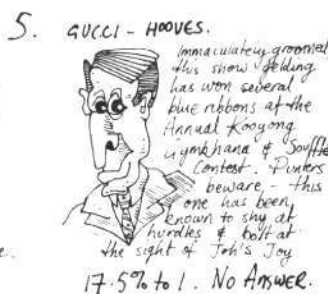 5. GUCCI - HOOVES.
Immaculately groomed,
this show gelding
has won several
blue ribbons at the
Annual Kooyong
Gymkhana & Souffle
Contest. Punters
beware - this
one has been
known to shy at
hurdles & bolt at
the sight of Joh's Joy
e.
17.5% to 1. No Answer.